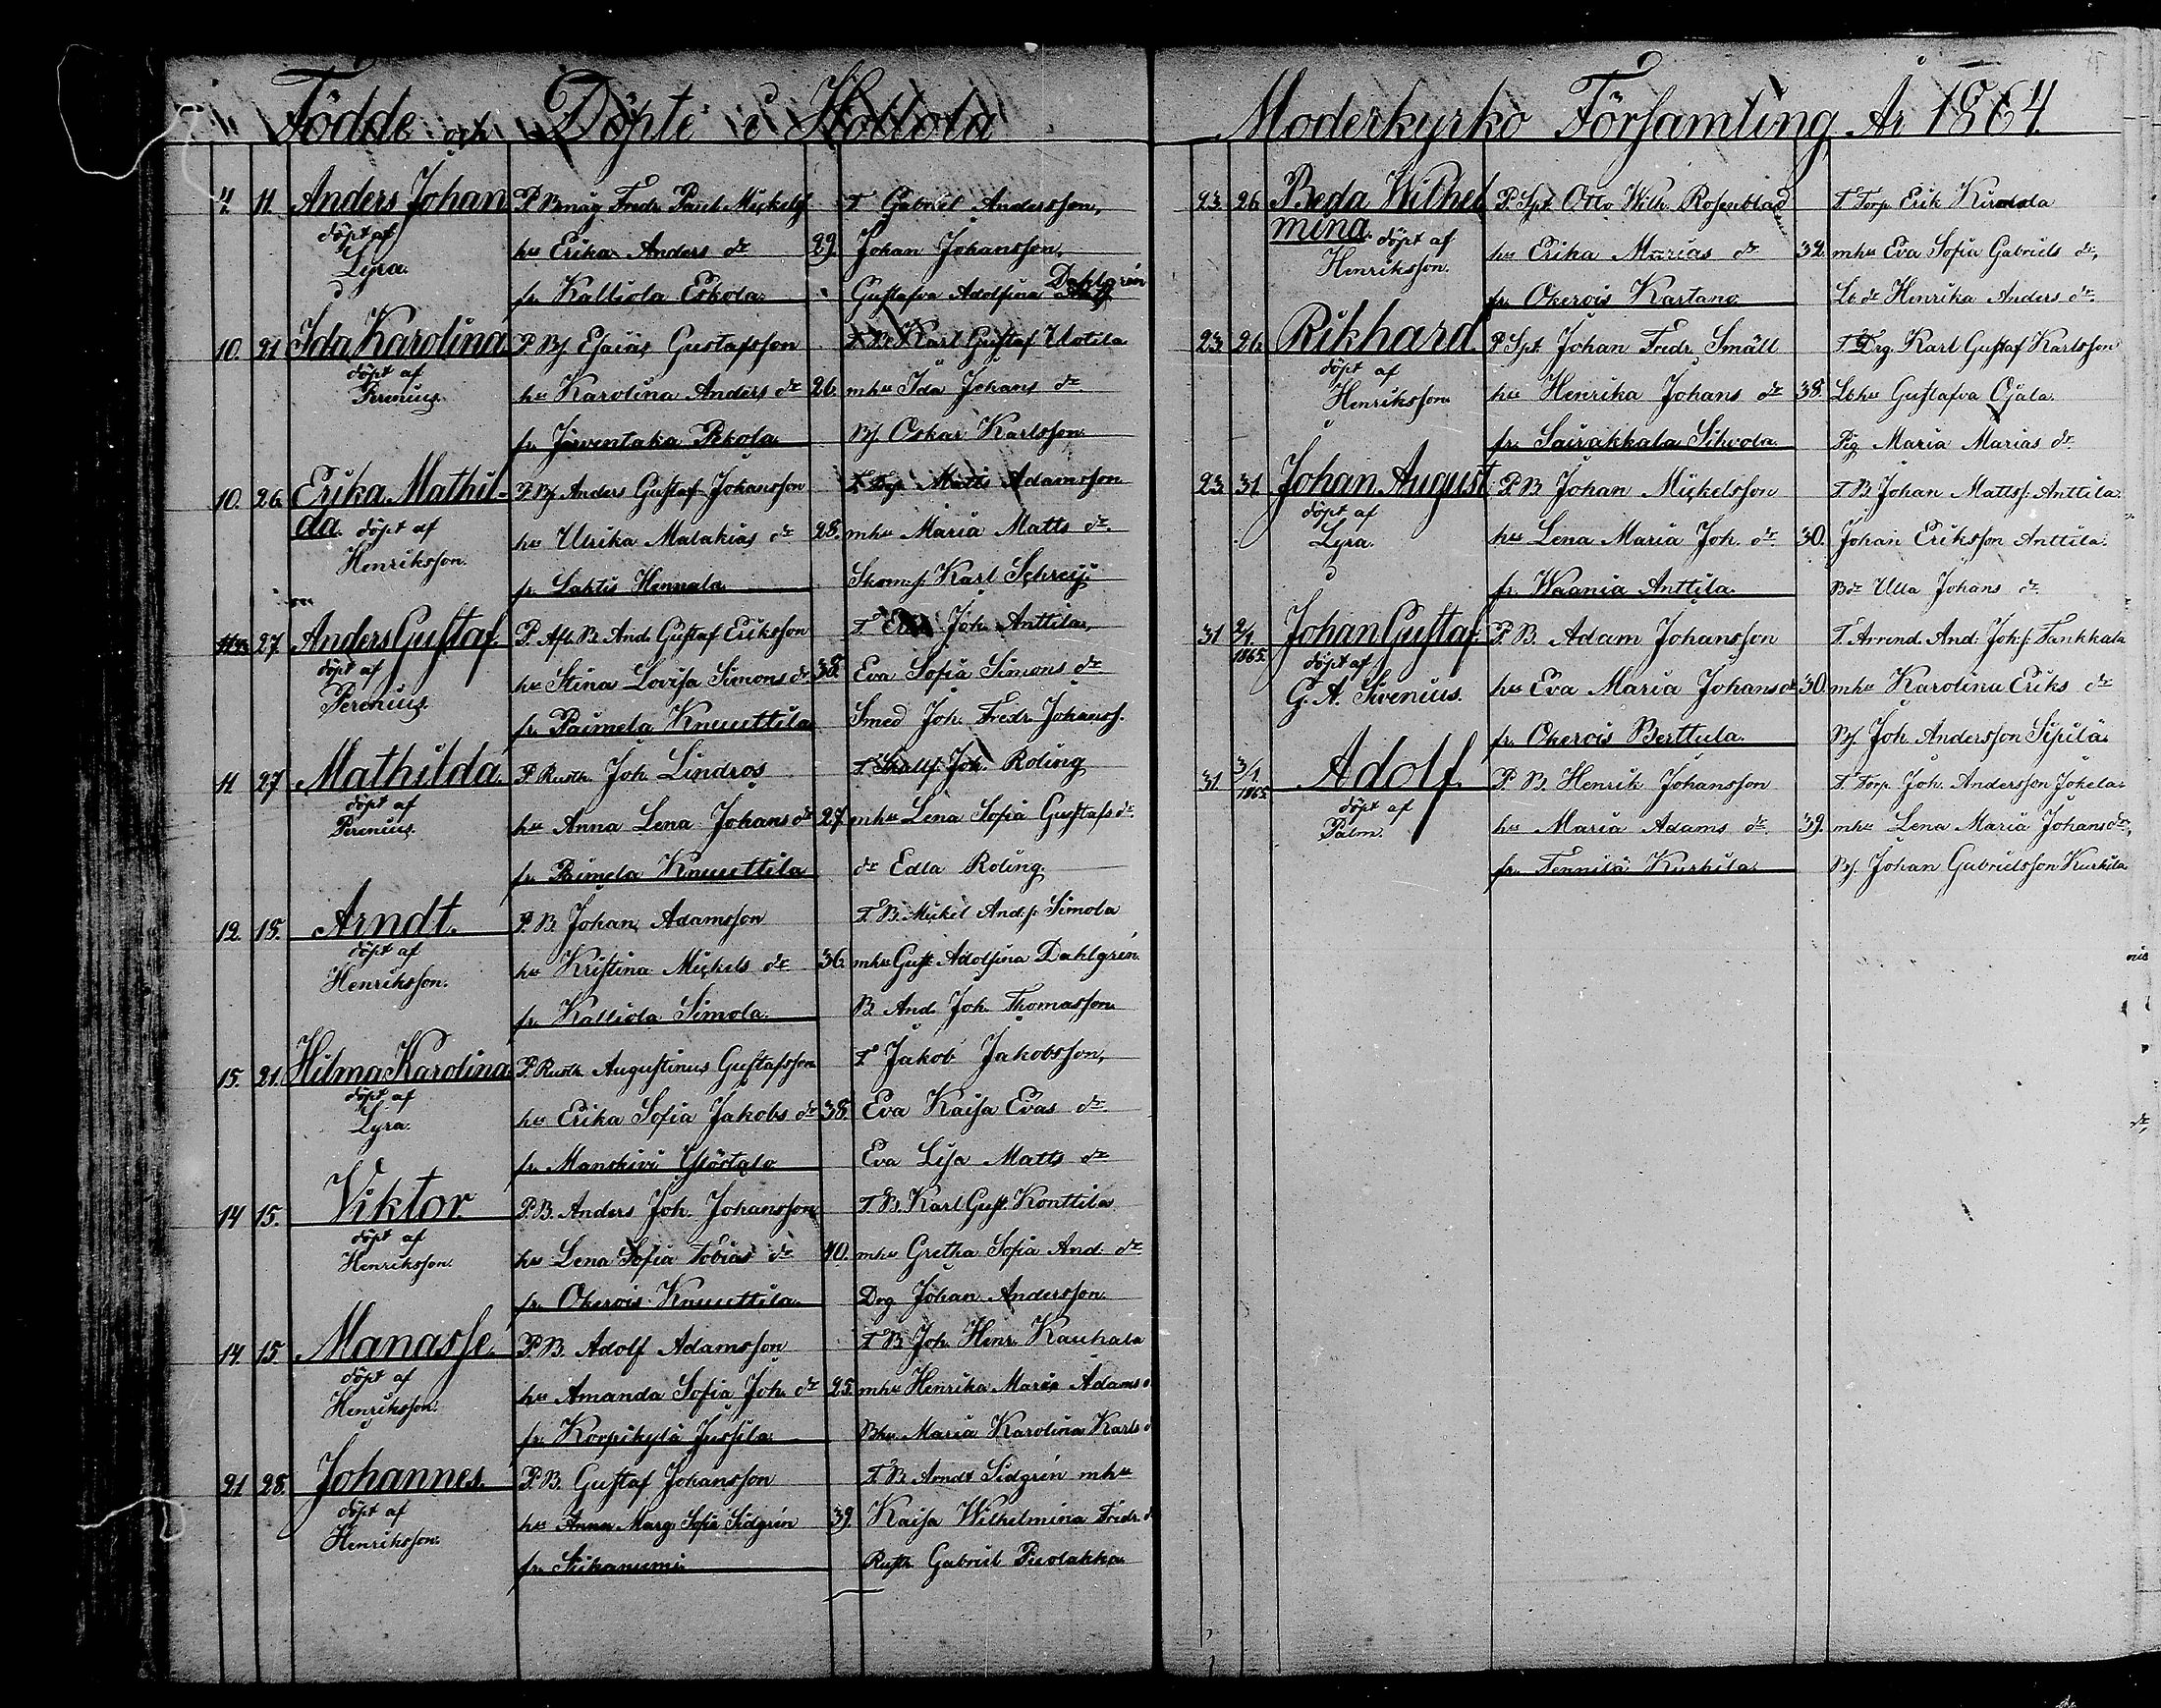 Födde och Döpte i Hollola
4. 11. Anders Johan P. Bmåg Fredr. Paul Mickelss. T. Gabriel Andersson,
döpt af hu Erika Anders dr 29. Johan Johansson,
Lyra. fr. Kalliola Eskola. Gustafva Adolfina Dahlgrén
10. 21 Ida Karolina P. Bs. Esaias Gustafsson T. B. Karl Gustaf Uotila
döpt af hu Karolina Anders dr 26. mhu Ida Johans dr
Perenius. fr. Järventaka Pekola. Bs. Oskar Karlsson
10. 26. Erika Mathil- P. Bs. Anders Gustaf Johansson T. Matts Adamsson
da. döpt af hu Ulrika Malakias dr 28. mhu Maria Matts dr.
Henriksson. fr. Lahtis Hennala. Skom. Karl Schreij
27. Anders Gustaf. P. Afl. B. And. Gustaf Eriksson T. Joh. Anttila,
döpt af hu Stina Lovisa Simons dr. 38. Eva Sofia Simons dr.
Perenius. fr. Paimela Knuuttila Smed Joh. Fredr. Johanss.
11 27 Mathilda. P. Rusth. Joh. Lindros T. Joh. Roling
döpt af hu Anna Lena Johans dr 27. mhu Lena Sofia Gustafs dr.
Perenius. fr. Paimela Knuuttila dr Edla Roling.
12. 18. Arndt. P. B. Johan Adamsson T. B. Mickel Ands. Simola
döpt af hu Kristina Mickels dr 36. mhu Gust. Adolfina Dahlgrén.
Henriksson. fr. Kalliola Simola. B. And. Joh. Thomasson
15. 21. Hilma Karolina P. Rusth. Augustinus Gustafsson T. Jakob Jakobsson,
döpt af hu Erika Sofia Jakobs dr 38. Eva Kaisa Evas dr.
Lyra. fr. Manskivi Yöstalo Eva Lisa Matts dr
14 15. Viktor P. B. Anders Joh. Johansson T. B. Karl Gust. Konttila
döpt af hu Lena Sofia Tobias dr 40. mhu Gretha Sofia And. dr
Henriksson. fr. Okerois Knuuttila. Drg Johan Andersson.
14. 15 Manasse. P. B. Adolf Adamsson T. B. Joh. Henr. Kauhala
döpt af hu Amanda Sofia Joh. dr 25. mhu Henrika Maria Adams d
Henriksson. fr. Korpikylä Jussila. Bhu. Maria Karolina Karls d
21 28. Johannes. P. B. Gustaf Johansson T. B. Arndt Sidgrén mhu
döpt af hu Anna Marg. Sofia Sidgrén 39. Kaisa Wilhelmina Fredr. d
Henriksson. fr. Siikaniemi. Rusth. Gabriel Puolakka
Moderkyrko Församling År 1864.
23 26 Beda Wilhel P. Spt. Otto Wilh. Rosenblad T. Torp. Erik
mina. döpt af hu Erika Marias dr 32. mhu Eva Sofia Gabriels dr,
Henriksson. fr. Okerois Kartano Lb. dr Henrika Anders dr
23. 26. Rikhard P. Spt. Johan Fredr. Småll T. Drg. Karl Gustaf Karlsson
döpt af hu Henrika Johans dr 38. Lbhu Gustafva Ojala.
Henriksson. fr. Sairakkala Sihvola. Pig. Maria Marias dr
23. 31 Johan August P. B. Johan Mickelsson T. B. Johan Mattss. Anttila.
döpt af hu Lena Maria Joh. dr. 30. Johan Eriksson Anttila.
Lyra. fr. Waania Anttila. Bdr Ulla Johans dr
31 2/1 1865. Johan Gustaf. P. B. Adam Johansson T. Arrend. And. Johs. Tankkala
döpt af hu Eva Maria Johans dr 30. mhu Karolina Eriks dr
G. A. Sirenius. fr. Okerois Berttula. Bs. Joh. Andersson Sipilä.
31. 3/1. 1865 Adolf. P. B. Henrik Johansson T. Torp. Joh. Andersson Jokela
döpt af hu Maria Adams dr. 39. mhu Lena Maria Johans dr,
Palm. fr. Tennilä Kurkila. Bs. Johan Gabrielsson Kurkila